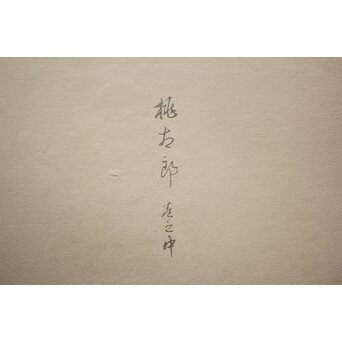 桃太郎 巻之中